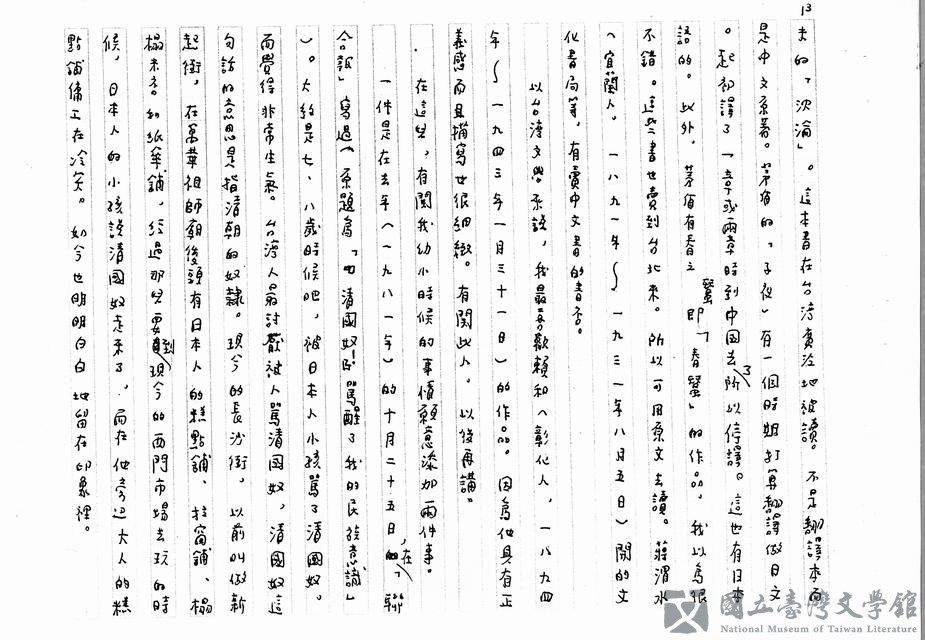 13
夫的「沈淪」。這本書在台湾廣泛地被讀。不是翻譯本而
是中文原著。茅盾的「子夜」有一個時期打算翻譯做日文
。起初譯了一章或兩章時到中国去了所以停譯。這也有日本
語的。以外，茅盾有春之蠶即「春蠶」的作品，我以為很
不錯。這些書也賣到台北來。所以可用原文去讀。蔣渭水
（宜蘭人。一八九一年～一九三一年八月五日）開的文
化書局等，有賣中文書的書店。
以台湾文學來說，我最喜歡賴和（彰化人，一八九四
年～一九四三年一月三十一日）的作品。因為他具有正
義感而且描寫也很細緻。有關此人。以後再講。
在這兒，有關我幼小時候的事情願意添加兩件事。
一件是在去年（一九八一年）的十月二十五日的，在「聯
合報」寫過（原題為「『清國奴！』罵醒了我的民族意識」
）。大約是七、八歲時候吧，被日本人小孩罵了清國奴。
而覺得非常生氣。台湾人最討厭被人罵清国奴，清國奴這
句話的意思是指清朝的奴隸。現今的長沙街，以前叫做新
起街，在萬華祖師廟後頭有日本人的糕點鋪、拉窗鋪、榻
榻米店和紙傘鋪，経過那兒要到現今的西門市場去玩的時
候，日本人的小孩說清國奴走來了，而在他旁边大人的糕
點鋪傭工在冷笑。如今也明明白白地留在印象裡。
國立臺灣文學館
National Museum of Taiwan Literature